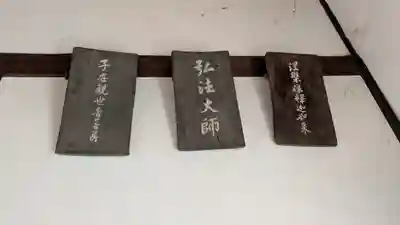 涅槃様釈迦如来
弘法大師
子安観世音菩薩